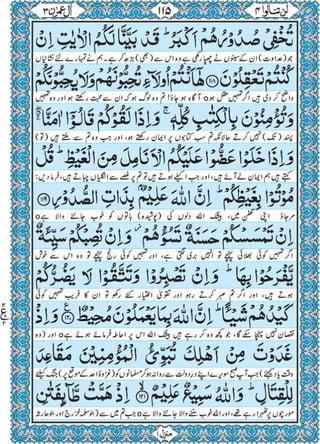 لن تنالوا ٤ ١١٥ آل عمرٰن ٣
تُخْفِىْ صُدُوْرُهُمْ اَكْبَرُ ؕ قَدْ بَيَّنَّا لَكُمُ الْاٰيٰتِ اِنْ
جو (عداوت) ان کے سینوں نے چھپا رکھی ہے وہ اس سے (بھی) بڑھ کر ہے۔ ہم نے تمہارے لئے نشانیاں
كُنْتُمْ تَعْقِلُوْنَ ﴿۱۱۸﴾ هٰٓاَنْتُمْ اُولَآءِ تُحِبُّوْنَهُمْ وَلَا يُحِبُّوْنَكُمْ
واضح کر دی ہیں اگر تمہیں عقل ہو o آگاہ ہو جاؤ! تم وہ لوگ ہو کہ ان سے محبت رکھتے ہو اور وہ تمہیں
وَتُؤْمِنُوْنَ بِالْكِتٰبِ كُلِّهٖ ۚ وَاِذَا لَقُوْكُمْ قَالُوْٓا اٰمَنَّا ۖۗ
پسند (تک) نہیں کرتے حالانکہ تم سب کتابوں پر ایمان رکھتے ہو، اور جب وہ تم سے ملتے ہیں (تو)
وَاِذَا خَلَوْا عَضُّوْا عَلَيْكُمُ الْاَنَامِلَ مِنَ الْغَيْظِ ؕ قُلْ
کہتے ہیں ہم ایمان لے آئے ہیں، اور جب اکیلے ہوتے ہیں تو تم پر غصے سے انگلیاں چباتے ہیں، فرما دیں:
مُوْتُوْا بِغَيْظِكُمْ ؕ اِنَّ اللّٰهَ عَلِيْمٌۢ بِذَاتِ الصُّدُوْرِ ﴿۱۱۹﴾
مر جاؤ اپنی گھٹن میں، بیشک اللہ دلوں کی (پوشیدہ) باتوں کو خوب جاننے والا ہے o
اِنْ تَمْسَسْكُمْ حَسَنَةٌ تَسُؤْهُمْ ؗ وَاِنْ تُصِبْكُمْ سَيِّئَةٌ
اگر تمہیں کوئی بھلائی پہنچے تو انہیں بری لگتی ہے، اور تمہیں کوئی رنج پہنچے تو وہ اس سے خوش
يَّفْرَحُوْا بِهَا ؕ وَاِنْ تَصْبِرُوْا وَتَتَّقُوْا لَا يَضُرُّكُمْ
ہوتے ہیں، اور اگر تم صبر کرتے رہو اور تقوٰی اختیار کئے رکھو تو ان کا فریب تمہیں کوئی
كَيْدُهُمْ شَيْـًٔا ؕ اِنَّ اللّٰهَ بِمَا يَعْمَلُوْنَ مُحِيْطٌ ﴿۱۲۰﴾ وَاِذْ
نقصان نہیں پہنچا سکے گا، جو کچھ وہ کر رہے ہیں بیشک اللہ اس پر احاطہ فرمائے ہوئے ہے o اور (وہ
غَدَوْتَ مِنْ اَهْلِكَ تُبَوِّئُ الْمُؤْمِنِيْنَ مَقَاعِدَ
لِلْقِتَالِ ؕ وَاللّٰهُ سَمِيْعٌ عَلِيْمٌ ﴿۱۲۱﴾ اِذْ هَمَّتْ طَّآئِفَتٰنِ
مورچوں پر ٹھہرا رہے تھے، اور اللہ خوب سننے والا جاننے والا ہے o جب تم میں سے (بنو سلمہ خزرج اور بنو حارثہ
منزل ۱